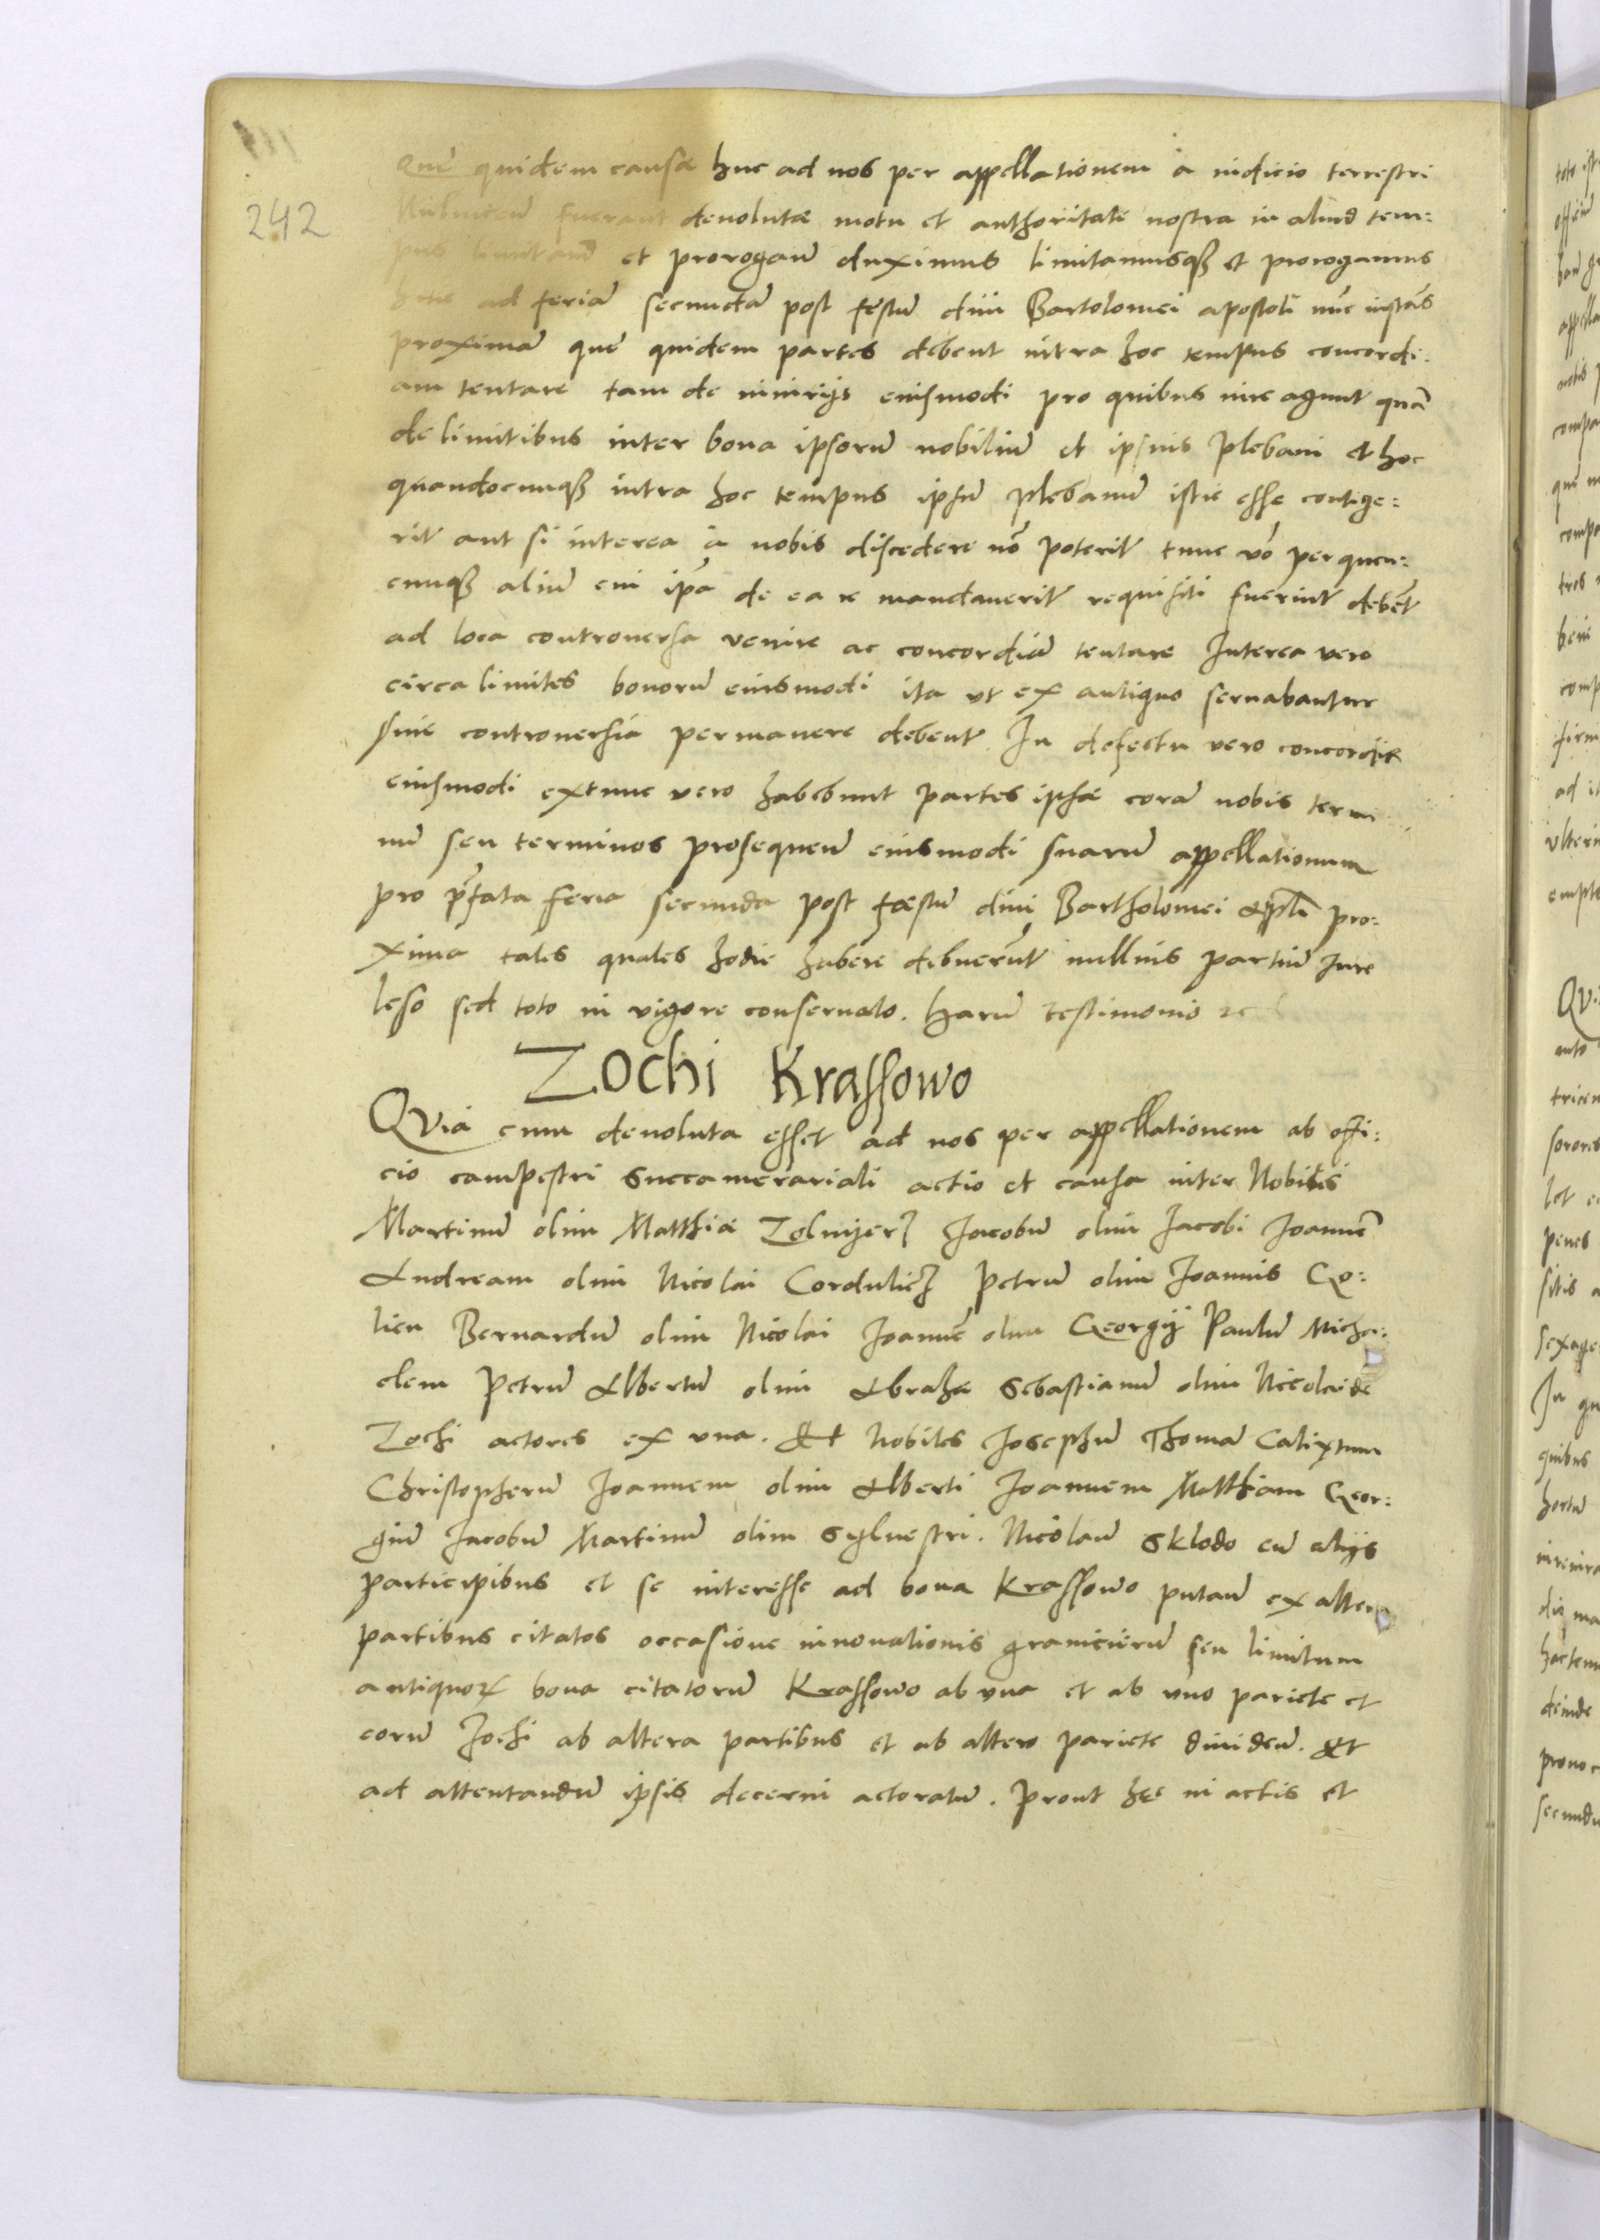 242
Que quidem causæ huc ad nos per appellationem a iudicio terrestri
fuerant deuolutæ motu et authoritate nostra in aliud tem:
pus limitand et prorogand duximus limitamusq3 et prorogamus
ad feriā secundā post festū diui Bartolomei apostoli nūc instās
proximā que quidem partes debent intra hoc tempus concordi:
am tentare tam de iniurijs eiusmodi pro quibus iure agunt quā
de limitibus inter bona ipsorū nobiliū et ipsius plebani et hoc
quandocunq3 intra hoc tempus ipsū plebanū istic esse contige:
rit aut si interea a nobis discedere nō poterit tunc vō per quem:
cunq3 aliū cui ipā de ea re mandauerit requisiti fuerint debēt
ad loca controuersa venire ac concordiā tentare Interea vero
circa limites bonorū eiusmodi ita vt ex antiquo seruabantur
sine controuersia permanere debent. In defectu vero concordiæ
eiusmodi extunc vero habebunt partes ipsæ corā nobis termi
nū seu terminos prosequend eiusmodi suarū appellationum
pro p̄fata feria secunda post fæstū diui Bartholomei apl̄i pro:
xima tales quales hodie habere debuerūt nullius partiū iure
leso sed toto in vigore conseruato. Harū testimonio
Zochi Krassowo
QVia cum deuoluta esset ad nos per appellationem ab offi:
cio campestri succamerariali actio et causa inter Nobiles
Martinū olim Matthiæ Jacobū olim Jacobi Joannē
Andream olim Nicolai Petrū olim Joannis Go:
lien Bernardū olim Nicolai Joannē olim Georgij Paulū Micha:
elem Petrū Albertū olim Abrahæ Sebastianū olim Nicolai de
Zochi actores ex vna. Et Nobiles Josephū Thomā Calixtum
Christopherū Joannem olim Alberti Joannem Matthiam Geor:
giū Jacobū Martinū olim Syluestri. Nicolaū Sklodo cū alijs
participibus et se interesse ad bona Krassowo putan ex altera
partibus citatos occasione innouationis graniciērū seu limitum
antiquoꝝ bona citatorū Krassowo ab vna et ab vno pariete et
eorū Zochi ab altera partibus et ab altero pariete diuiden. Et
ad attentandū ipsis decerni actoratū. Prout hęc in actis et